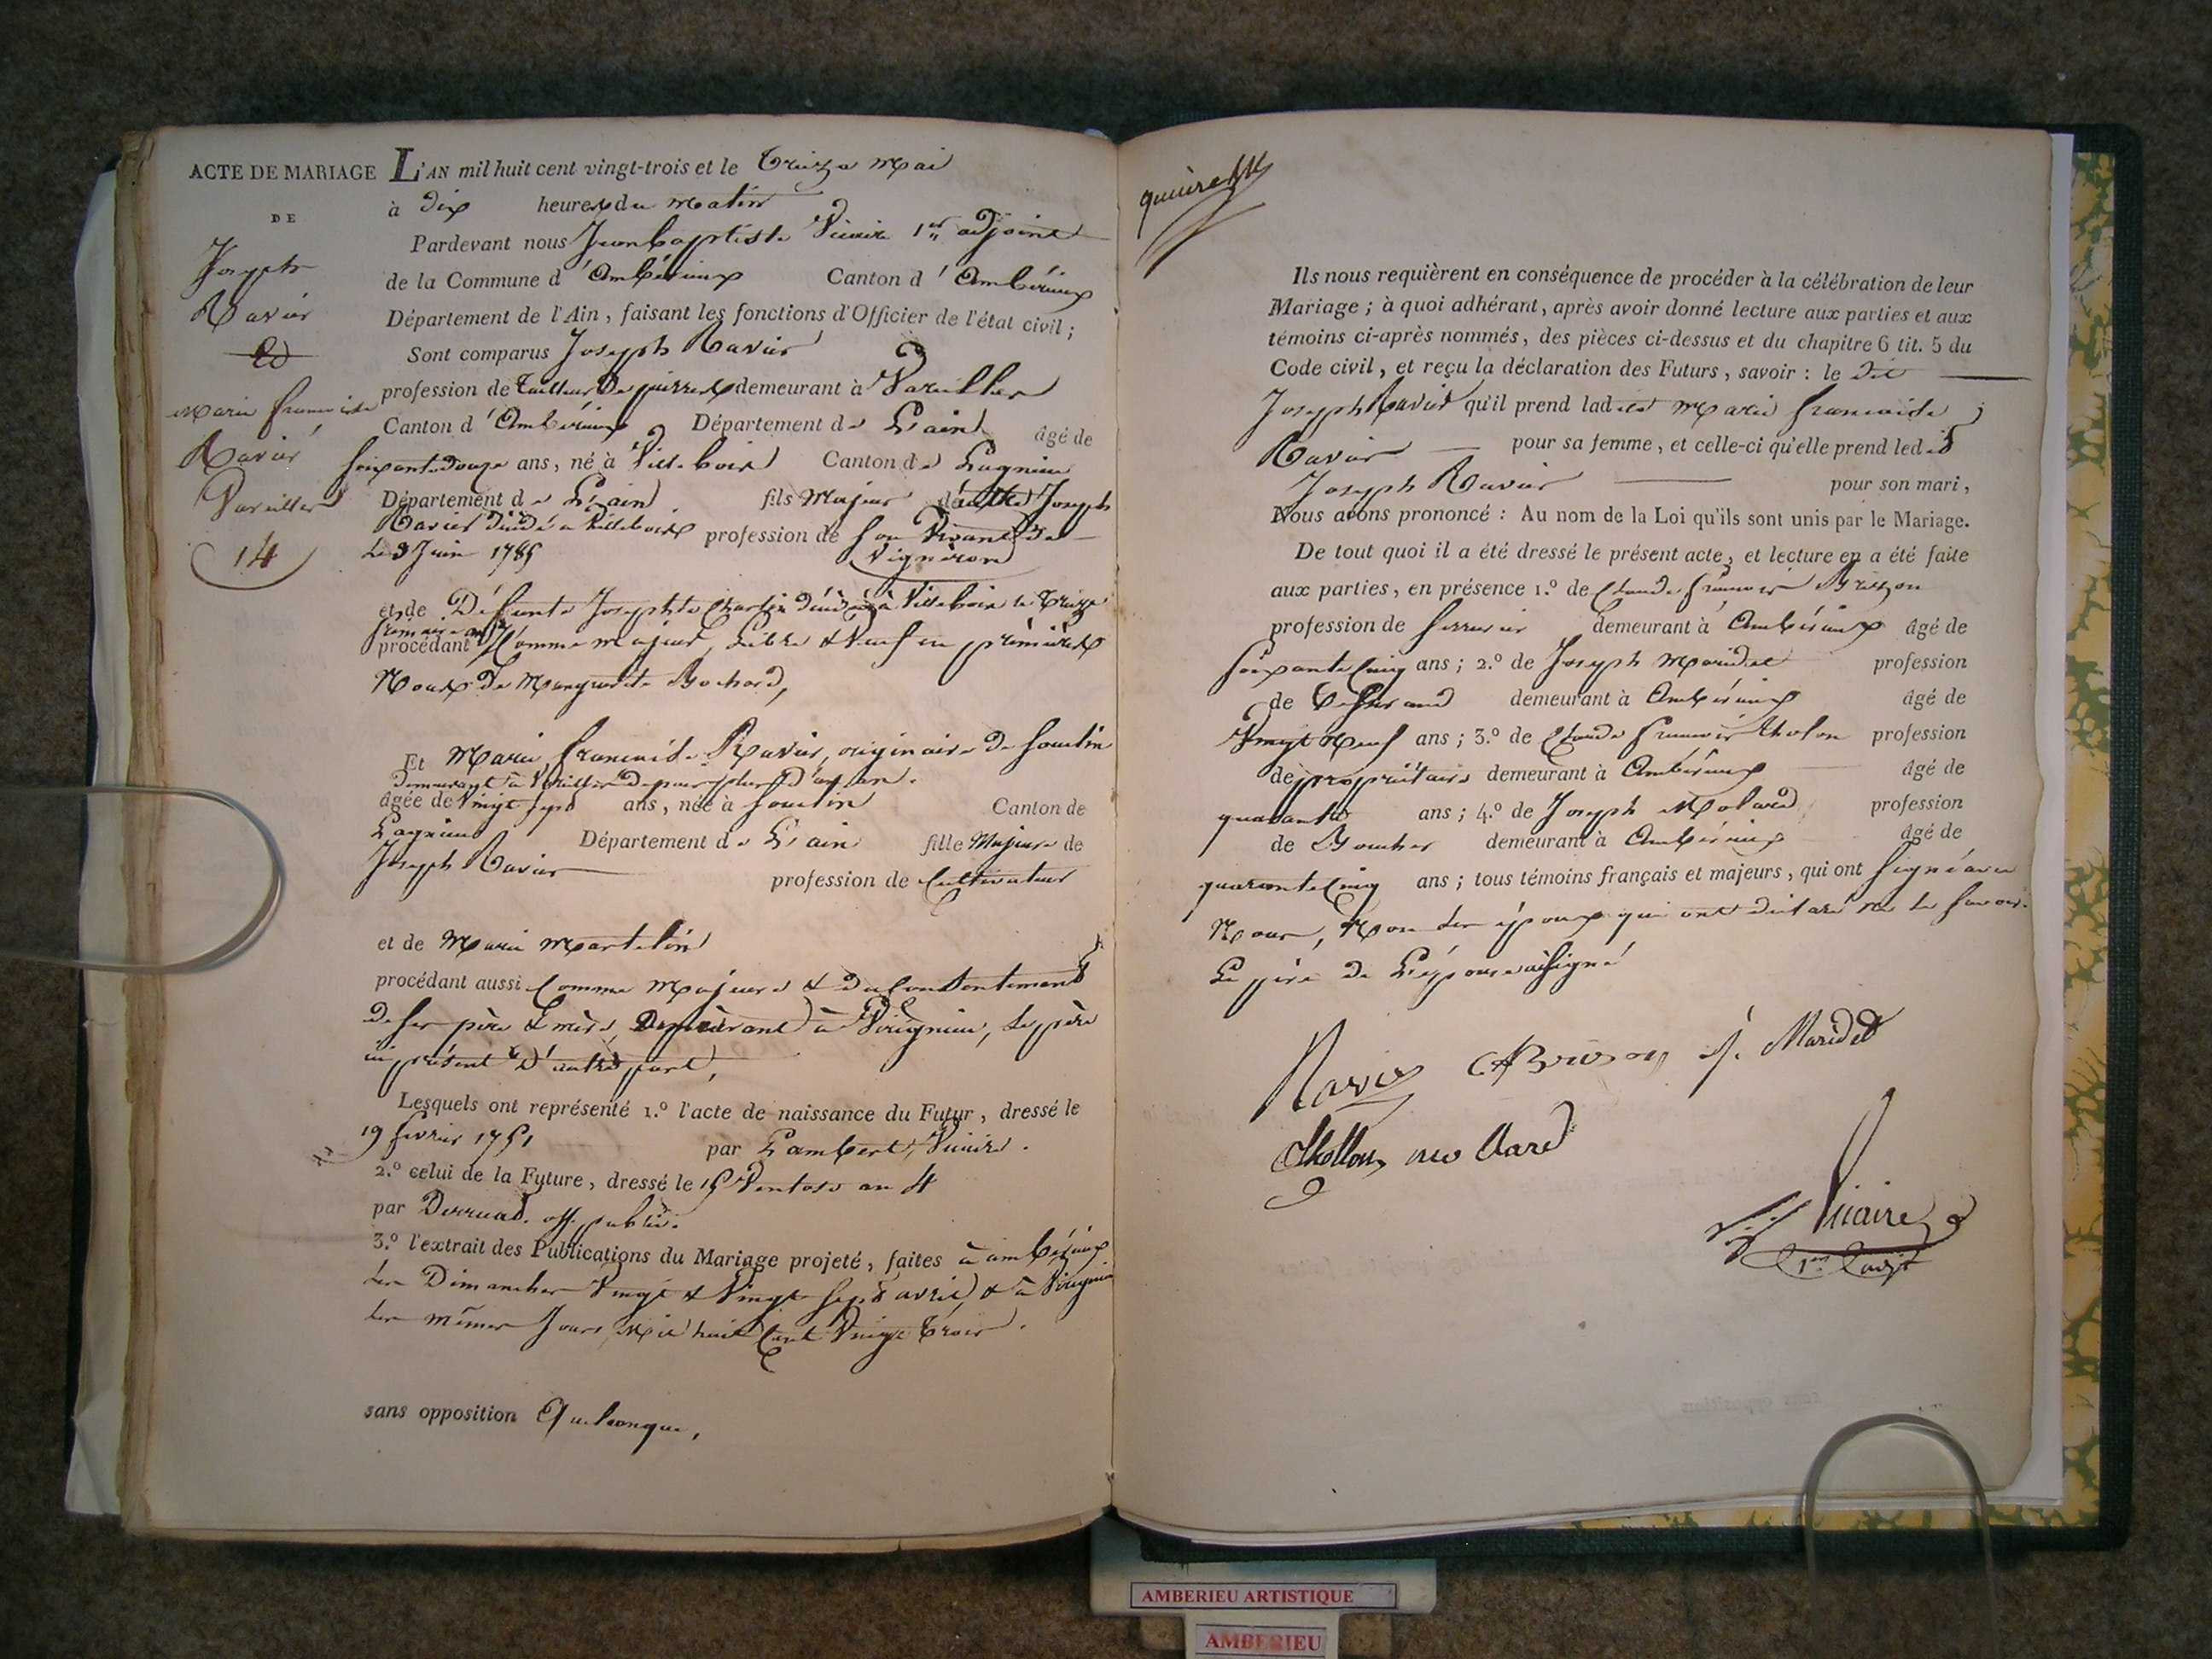 ACTE DE MARIAGE
DE
Joseph
Ravier
Et
Marie francoise
Ravier
Vareilles
14
L'AN mil huit cent vingt-trois et le Treize Mai
à Dix heures du matin
Pardevant nous Jean baptiste Vicaire 1er adjoint
de la Commune d'Ambérieux Canton d'Ambérieux
Département de l'Ain, faisant les fonctions d'Officier de l'état civil;
Sont comparus Joseph Ravier
profession de tailleur De pierres demeurant à Vareilles
Canton d'Ambérieux Département de L'ain âgé de
soixante douze ans, né à Villebois Canton de Lagnieu
Département de L'ain fils Majeur Joseph
Ravier décédé à Villebois profession de son Vivant de
Le 3 Juin 1785 Vigneron
et de Défunte Josephte décédée à Villebois le Treize
frimaire an
procédant Comme majeur, Libre & Veuf en premières
Noces De Marguerite Bochard,
Et Marie francoise Ravier, originaire de Soudin
Demeurant à Vareilles Depuis plus D'un an.
âgée de Vingt sept ans, née à Soudin Canton de
Lagnieu Département de L'ain fille Majeure de
Joseph Ravier profession de Cultivateur
et de Marie Martelin
procédant aussi Comme Majeure & du Consentement
De ses père & mère, Demeurant à Virignin, Le père
ici présent D'autre part,
Lesquels ont représenté 1.º l'acte de naissance du Futur, dressé le
19 fevrier 1751 par Lambert, Vicaire.
2.º celui de la Future, dressé le 15 Ventose an 4
par Derruad. off. public.
3.º l'extrait des Publications du Mariage projeté, faites à ambérieux
Les Dimanches Vingt & Vingt sept avril, & à Virignin
Les mêmes Jours Mil huit Cent Vingt Trois.
sans opposition Quelconque,
Ils nous requièrent en conséquence de procéder à la célébration de leur
Mariage; à quoi adhérant, après avoir donné lecture aux parties et aux
témoins ci-après nommés, des pièces ci-dessus et du chapitre 6 tit. 5 du
Code civil, et reçu la déclaration des Futurs, savoir: le dit
Joseph Ravier qu'il prend ladite Marie francoise
Ravier pour sa femme, et celle-ci qu'elle prend ledit
Joseph Ravier pour son mari,
Nous avons prononcé: Au nom de la Loi qu'ils sont unis par le Mariage.
De tout quoi il a été dressé le présent acte, et lecture en a été faite
aux parties, en présence 1.º de Claude francois Brison
profession de serrurier demeurant à Ambérieux âgé de
soixante Cinq ans; 2.º de Joseph Maridet profession
de Tisserand demeurant à Ambérieux âgé de
Vingt Neuf ans; 3.º de Claude francois Cholon profession
de propriétaire demeurant à Ambérieux âgé de
quarante ans; 4.º de Joseph Molard profession
de Boucher demeurant à Ambérieux âgé de
quarante Cinq ans; tous témoins français et majeurs, qui ont signé avec
Nous, Non Les époux qui ont déclaré ne le savoir.
Le père de L'épouse a signé
Ravier CF Brison J. Maridet
Chollon mollard
Vicaire
1er adjt
AMBERIEU ARTISTIQUE
AMBERIEU